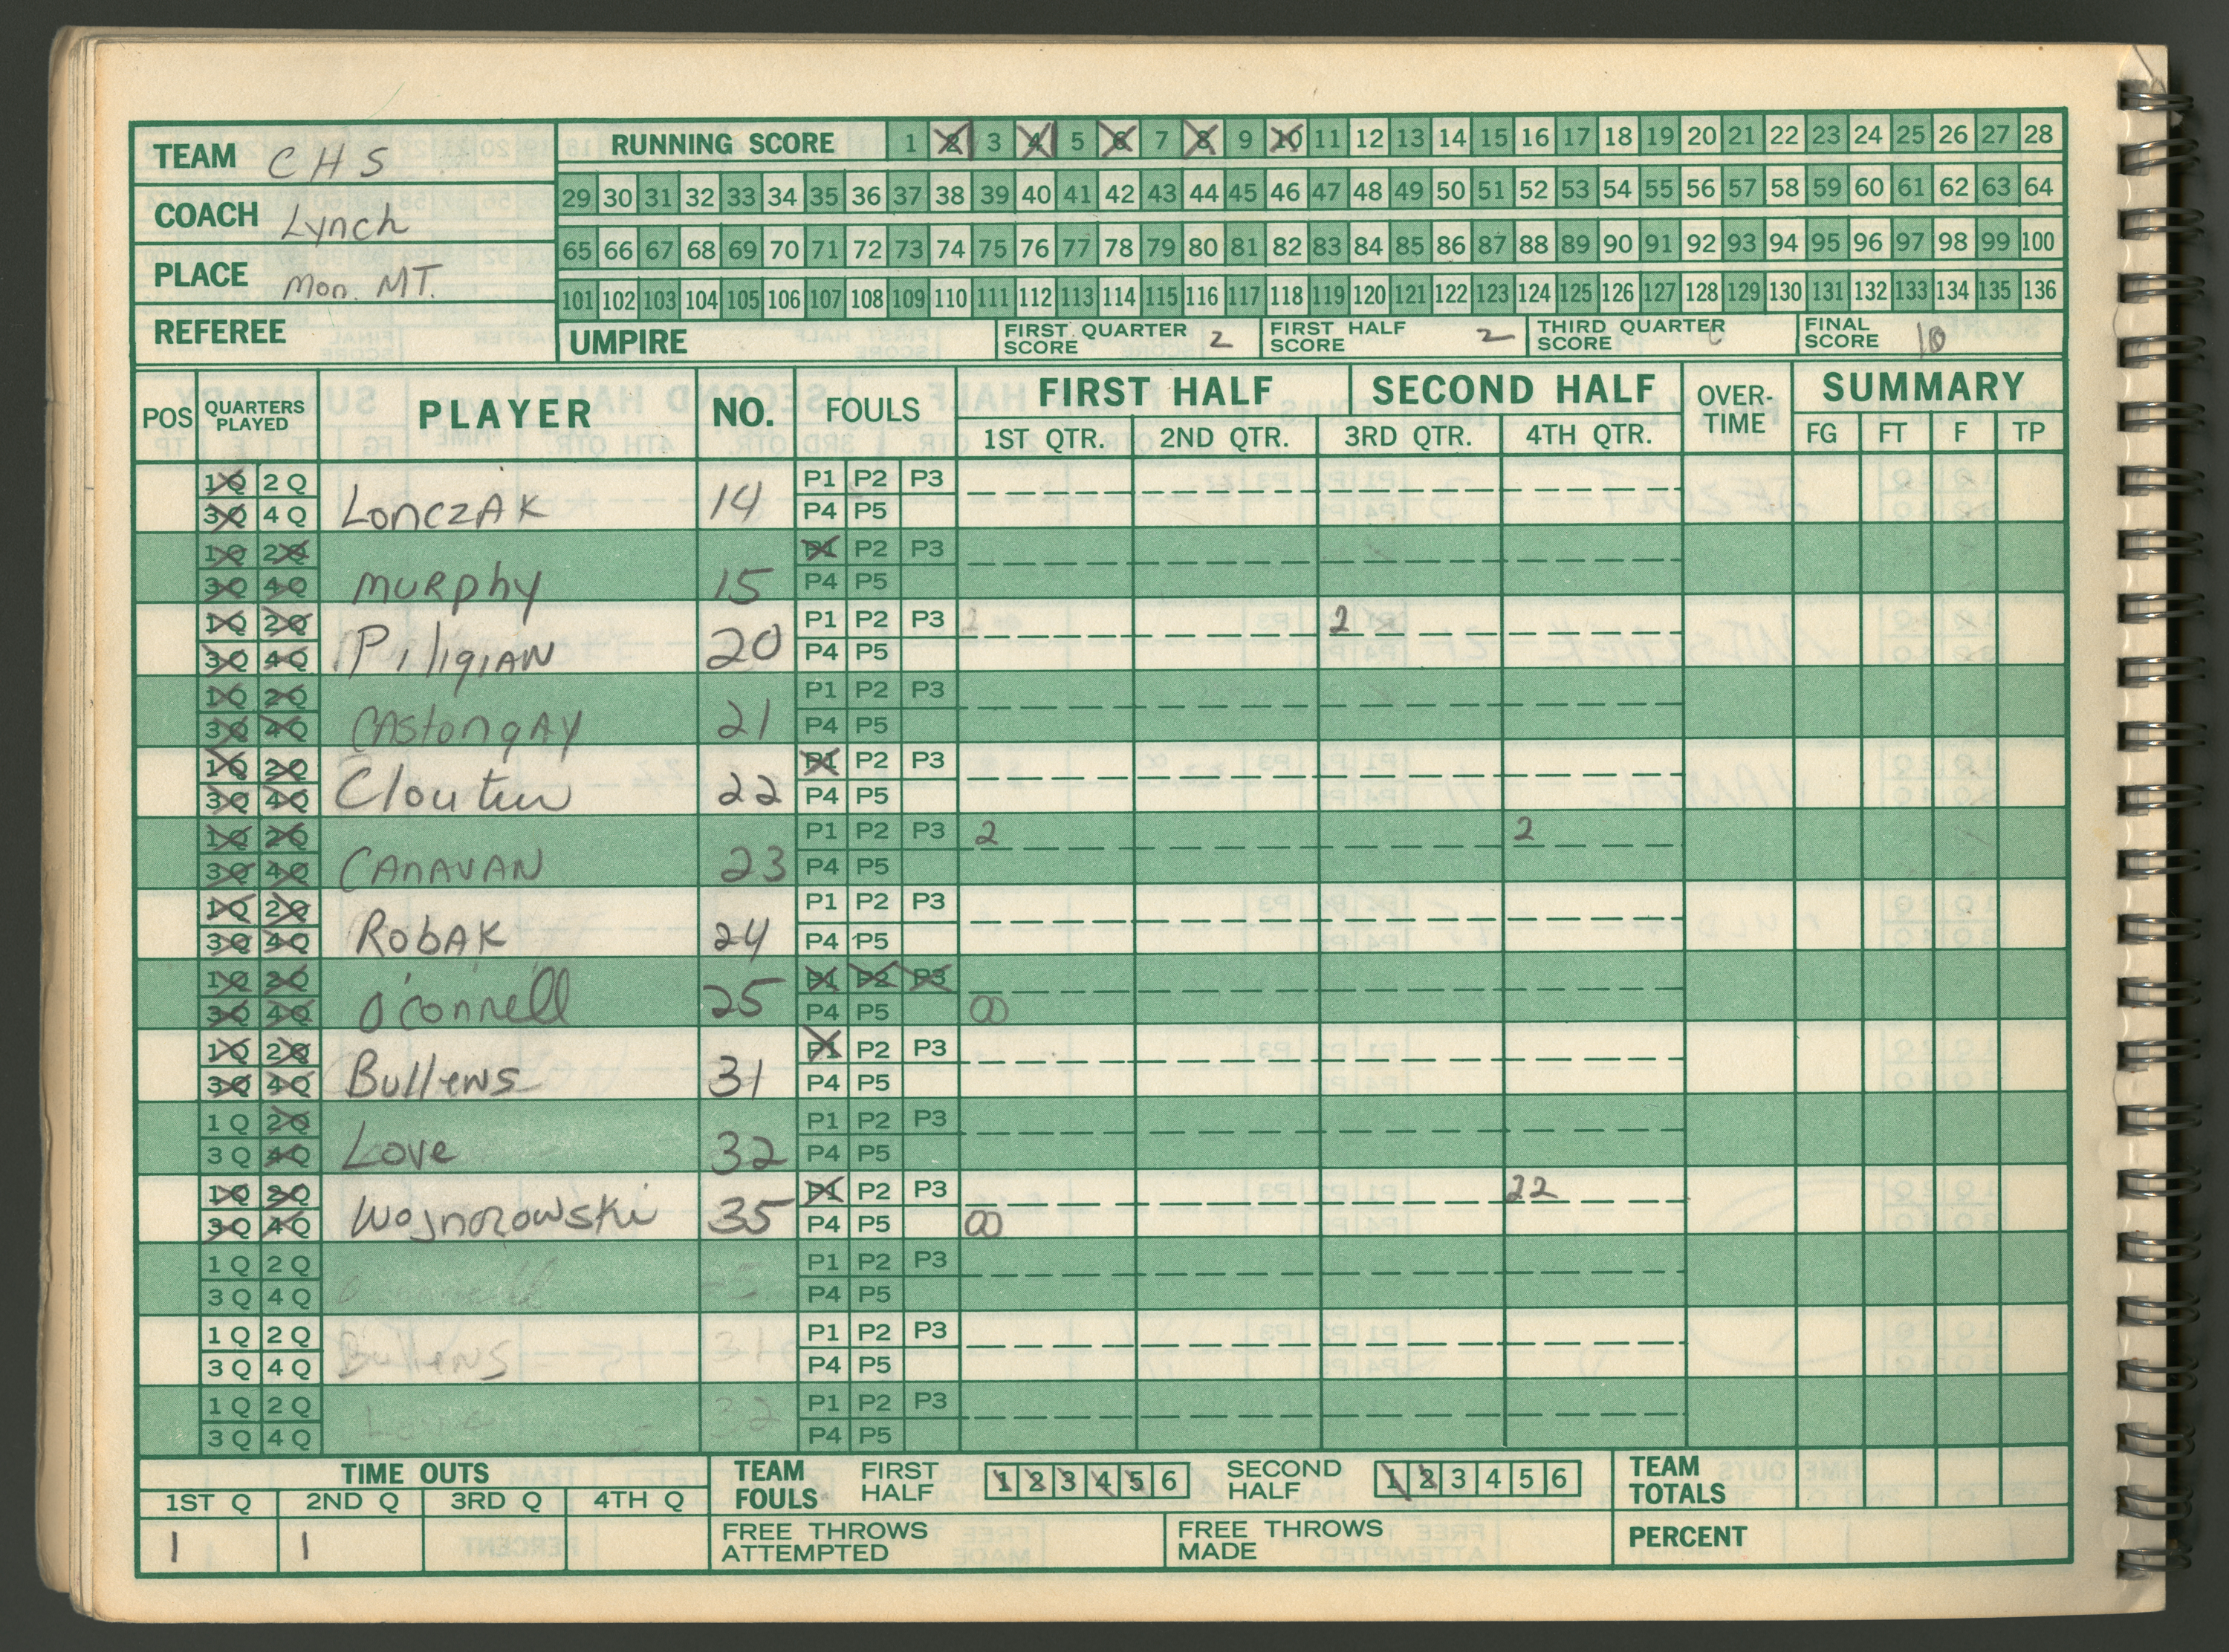 TEAM CHS
COACH Lynch
PLACE Mon. MT.
REFEREE
RUNNING SCORE 1 2 3 4 5 6 7 8 9 10 11 12 13 14 15 16 17 18 19 20 21 22 23 24 25 26 27 28
29 30 31 32 33 34 35 36 37 38 39 40 41 42 43 44 45 46 47 48 49 50 51 52 53 54 55 56 57 58 59 60 61 62 63 64
65 66 67 68 69 70 71 72 73 74 75 76 77 78 79 80 81 82 83 84 85 86 87 88 89 90 91 92 93 94 95 96 97 98 99 100
101 102 103 104 105 106 107 108 109 110 111 112 113 114 115 116 117 118 119 120 121 122 123 124 125 126 127 128 129 130 131 132 133 134 135 136
UMPIRE FIRST QUARTER SCORE 2 FIRST HALF SCORE 2 THIRD QUARTER SCORE FINAL SCORE 10
POS QUARTERS PLAYED PLAYER NO. FOULS FIRST HALF SECOND HALF OVER-TIME SUMMARY
1ST QTR. 2ND QTR. 3RD QTR. 4TH QTR. FG FT F TP
1Q 2Q P1 P2 P3
3Q 4Q LONCZAK 14 P4 P5
1Q 2Q P1 P2 P3
3Q 4Q MURPhy 15 P4 P5
1Q 2Q P1 P2 P3 2 2
3Q 4Q PiligIAN 20 P4 P5
1Q 2Q P1 P2 P3
3Q 4Q CAStongAy 21 P4 P5
1Q 2Q P1 P2 P3
3Q 4Q Cloutier 22 P4 P5
1Q 2Q P1 P2 P3 2 2
3Q 4Q CANAVAN 23 P4 P5
1Q 2Q P1 P2 P3
3Q 4Q RobAK 24 P4 P5
1Q 2Q P1 P2 P3
3Q 4Q O'Connell 25 P4 P5 00
1Q 2Q P1 P2 P3
3Q 4Q Bullens 31 P4 P5
1Q 2Q P1 P2 P3
3Q 4Q Love 32 P4 P5
1Q 2Q P1 P2 P3 22
3Q 4Q Wojnorowski 35 P4 P5 00
1Q 2Q P1 P2 P3
3Q 4Q O'Connell P4 P5
1Q 2Q P1 P2 P3
3Q 4Q Bullens 31 P4 P5
1Q 2Q P1 P2 P3
3Q 4Q Love 32 P4 P5
TIME OUTS TEAM FOULS FIRST HALF 1 2 3 4 5 6 SECOND HALF 1 2 3 4 5 6 TEAM TOTALS
1ST Q 2ND Q 3RD Q 4TH Q
1 1 FREE THROWS ATTEMPTED FREE THROWS MADE PERCENT